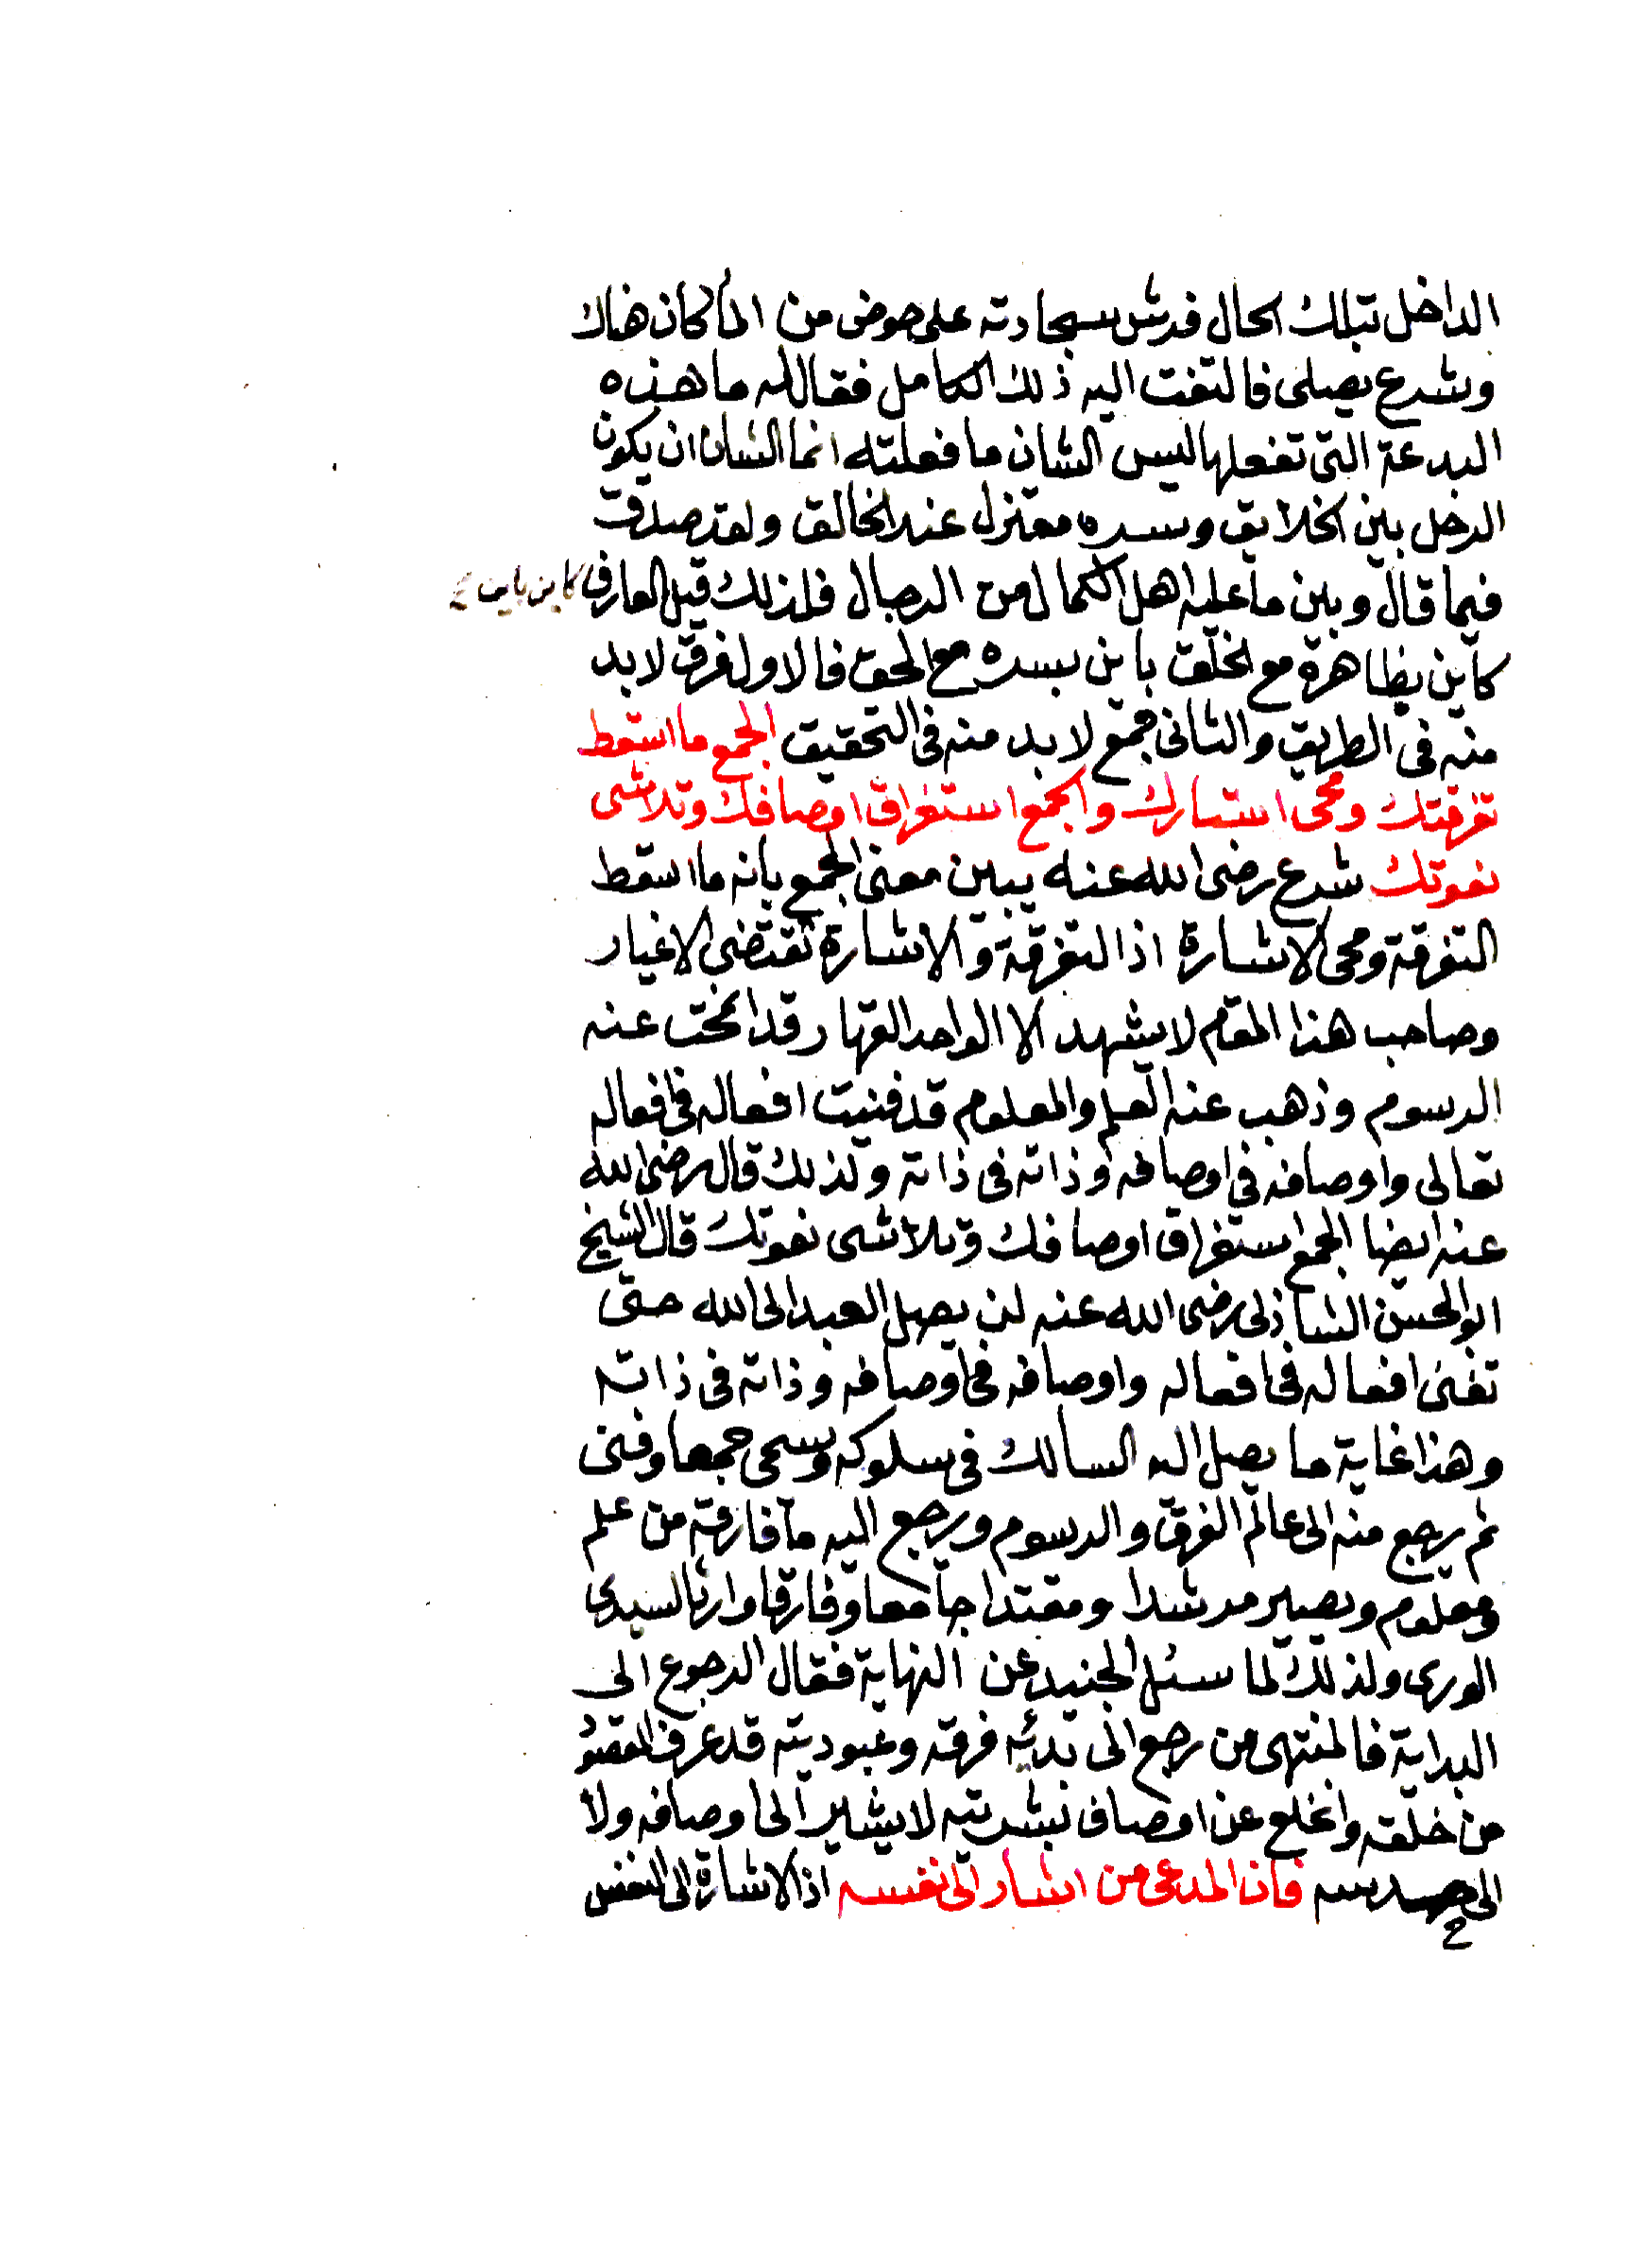 الداخل تبلك الحال فرش سجادته على حوض من الماء كان هناك
وشرع يصلى فالتفت اليه ذلك الكامل فقال له ما هذه
البدعة التى تفعلها ليس الشان ما فعلته انما الشان ان يكون
الرجل بين الخلايق وسره معتزل عند الخالق ولقد صدق
فيما قال وبين ما عليه اهل الكمال من الرجال فلذلك قيل العارف كاين باين
كاين بظاهره مع الخلق باين بسره مع الحق فالاول فرق لا بد
منه فى الطريق والثانى جمع لا بد منه فى التحقيق الجمع ما اسقط
تفرقتك ومحى اشارتك والجمع استغراق اوصافك وتلاشى
نعوتك شرع رضى الله عنه يبين معنى الجمع بانه ما اسقط
التفرقة ومحى الاشارة اذ التفرقة والاشارة تقتضى الاغيار
وصاحب هذا المقام لا يشهد الا الواحد القهار قد امحت عنه
الرسوم وذهب عنه العلم والمعلوم قد فنيت افعاله فى افعاله
تعالى واوصافه فى اوصافه وذاته فى ذاته ولذلك قال رضى الله
عنه ايضا الجمع استغراق اوصافك وتلاشى نعوتك قال الشيخ
ابو الحسن الشاذلى رضى الله عنه لن يصل العبد الى الله حتى
تفنى افعاله فى افعاله واوصافه فى اوصافه وذاته فى ذاته
وهذا غاية ما يصل اليه السالك فى سلوكه ويسمى جمعا وفنى
ثم يرجع منه الى عالم الفرق والرسوم ويرجع اليه ما فارقه من علم
ومعلوم ويصير مرشدا ومقتدا جامعا وفارقا وارثا لسيدى
الورى ولذلك لما سئل الجنيد عن النهاية فقال الرجوع الى
البداية فالمنتهى من رجع الى بدئه فرقه وعبوديته قد عرف المقصود
من خلقه وانخلع عن اوصاف بشريته لا يشير الى اوصافه ولا
الى فان المدعى من اشار الى نفسه اذ الاشارة الى النفس